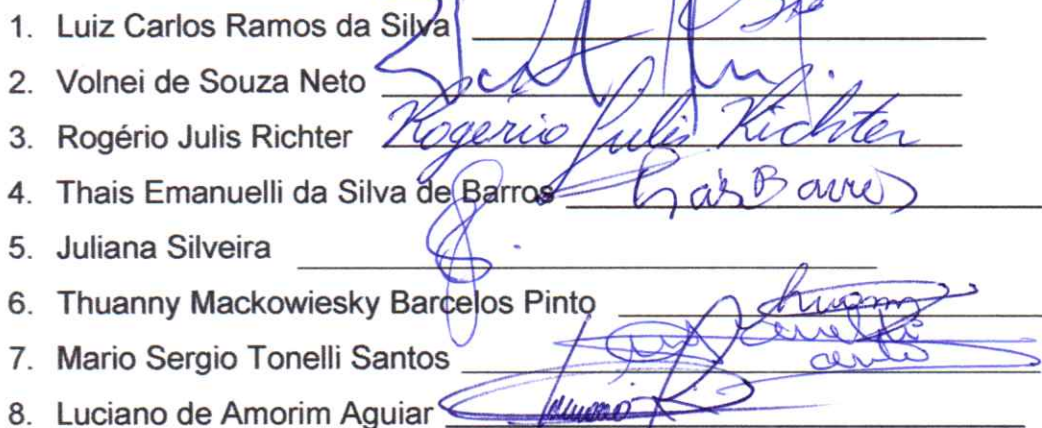 1. Luiz Carlos Ramos da Silva
2. Volnei de Souza Neto
3. Rogério Julis Richter Rogerio Julis Richter
4. Thais Emanuelli da Silva de Barros Thaís Barros
5. Juliana Silveira
6. Thuanny Mackowiesky Barcelos Pinto
7. Mario Sergio Tonelli Santos
8. Luciano de Amorim Aguiar